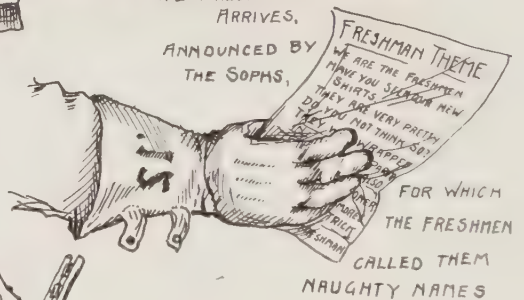 ARRIVES,
ANNOUNCED BY
THE SOPHS,
FRESHMAN THEME
WE ARE THE FRESHMEN
HAVE YOU SEEN OUR NEW
SHIRTS
THEY ARE VERY PRETTY
DO YOU NOT THINK SO?
THEY WRAPPED
MORE
TRICK
FRESHMAN
S.I.
FOR WHICH
THE FRESHMEN
CALLED THEM
NAUGHTY NAMES